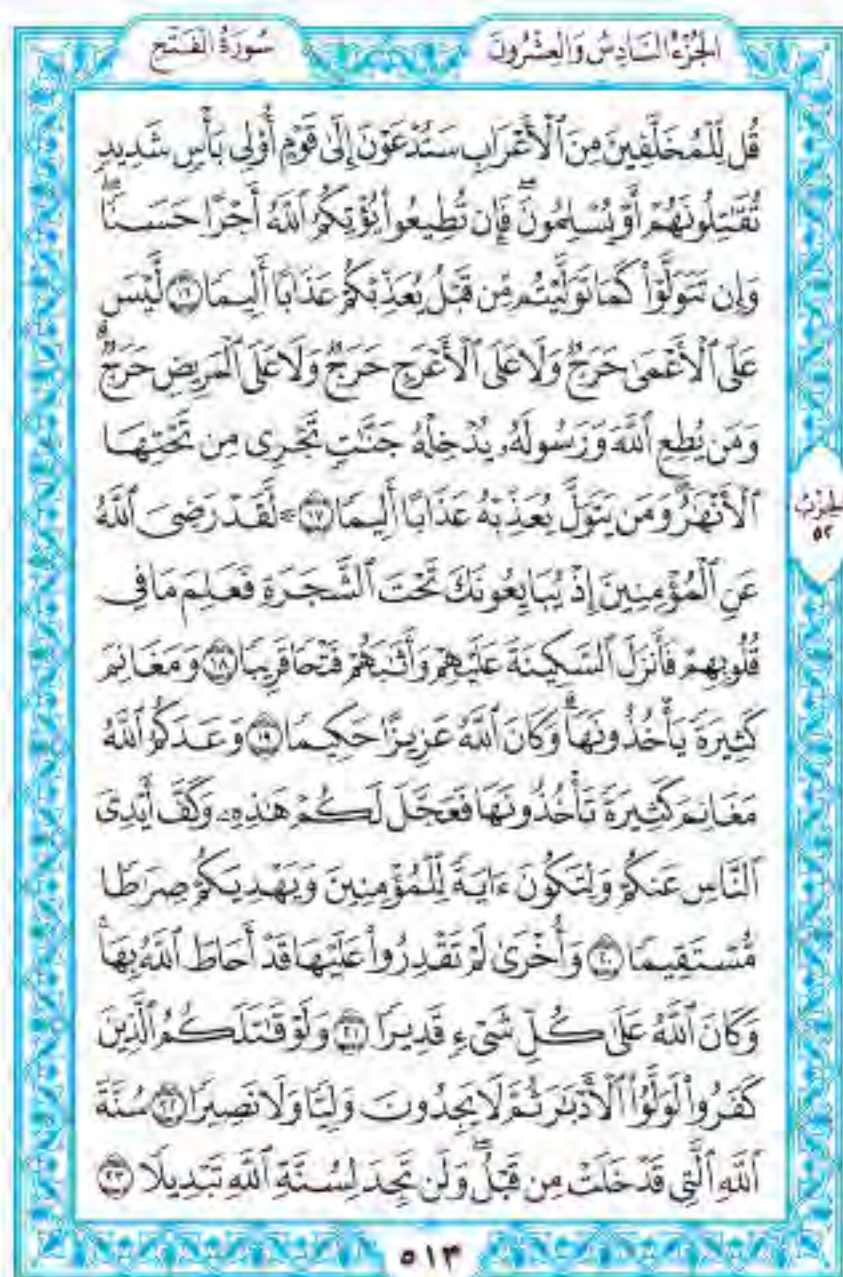 الجُزْءُ السَّادِسُ وَالعِشْرُونَ
سُورَةُ الفَتْحِ
قُل لِّلْمُخَلَّفِينَ مِنَ ٱلْأَعْرَابِ سَتُدْعَوْنَ إِلَىٰ قَوْمٍ أُوْلِى بَأْسٍ شَدِيدٍ
تُقَٰتِلُونَهُمْ أَوْ يُسْلِمُونَۖ فَإِن تُطِيعُواْ يُؤْتِكُمُ ٱللَّهُ أَجْرًا حَسَنًاۖ
وَإِن تَتَوَلَّوْاْ كَمَا تَوَلَّيْتُم مِّن قَبْلُ يُعَذِّبْكُمْ عَذَابًا أَلِيمًا ١٦ لَّيْسَ
عَلَى ٱلْأَعْمَىٰ حَرَجٌ وَلَا عَلَى ٱلْأَعْرَجِ حَرَجٌ وَلَا عَلَى ٱلْمَرِيضِ حَرَجٌۗ
وَمَن يُطِعِ ٱللَّهَ وَرَسُولَهُۥ يُدْخِلْهُ جَنَّٰتٍ تَجْرِى مِن تَحْتِهَا
ٱلْأَنْهَٰرُۖ وَمَن يَتَوَلَّ يُعَذِّبْهُ عَذَابًا أَلِيمًا ١٧ ۞ لَّقَدْ رَضِىَ ٱللَّهُ
عَنِ ٱلْمُؤْمِنِينَ إِذْ يُبَايِعُونَكَ تَحْتَ ٱلشَّجَرَةِ فَعَلِمَ مَا فِى
قُلُوبِهِمْ فَأَنزَلَ ٱلسَّكِينَةَ عَلَيْهِمْ وَأَثَٰبَهُمْ فَتْحًا قَرِيبًا ١٨ وَمَغَانِمَ
كَثِيرَةً يَأْخُذُونَهَاۗ وَكَانَ ٱللَّهُ عَزِيزًا حَكِيمًا ١٩ وَعَدَكُمُ ٱللَّهُ
مَغَانِمَ كَثِيرَةً تَأْخُذُونَهَا فَعَجَّلَ لَكُمْ هَٰذِهِۦ وَكَفَّ أَيْدِىَ
ٱلنَّاسِ عَنكُمْ وَلِتَكُونَ ءَايَةً لِّلْمُؤْمِنِينَ وَيَهْدِيَكُمْ صِرَٰطًا
مُّسْتَقِيمًا ٢٠ وَأُخْرَىٰ لَمْ تَقْدِرُواْ عَلَيْهَا قَدْ أَحَاطَ ٱللَّهُ بِهَاۚ
وَكَانَ ٱللَّهُ عَلَىٰ كُلِّ شَىْءٍ قَدِيرًا ٢١ وَلَوْ قَٰتَلَكُمُ ٱلَّذِينَ
كَفَرُواْ لَوَلَّوُاْ ٱلْأَدْبَٰرَ ثُمَّ لَا يَجِدُونَ وَلِيًّا وَلَا نَصِيرًا ٢٢ سُنَّةَ
ٱللَّهِ ٱلَّتِى قَدْ خَلَتْ مِن قَبْلُۖ وَلَن تَجِدَ لِسُنَّةِ ٱللَّهِ تَبْدِيلًا ٢٣
الحِزْبُ
٥٢
٥١٣